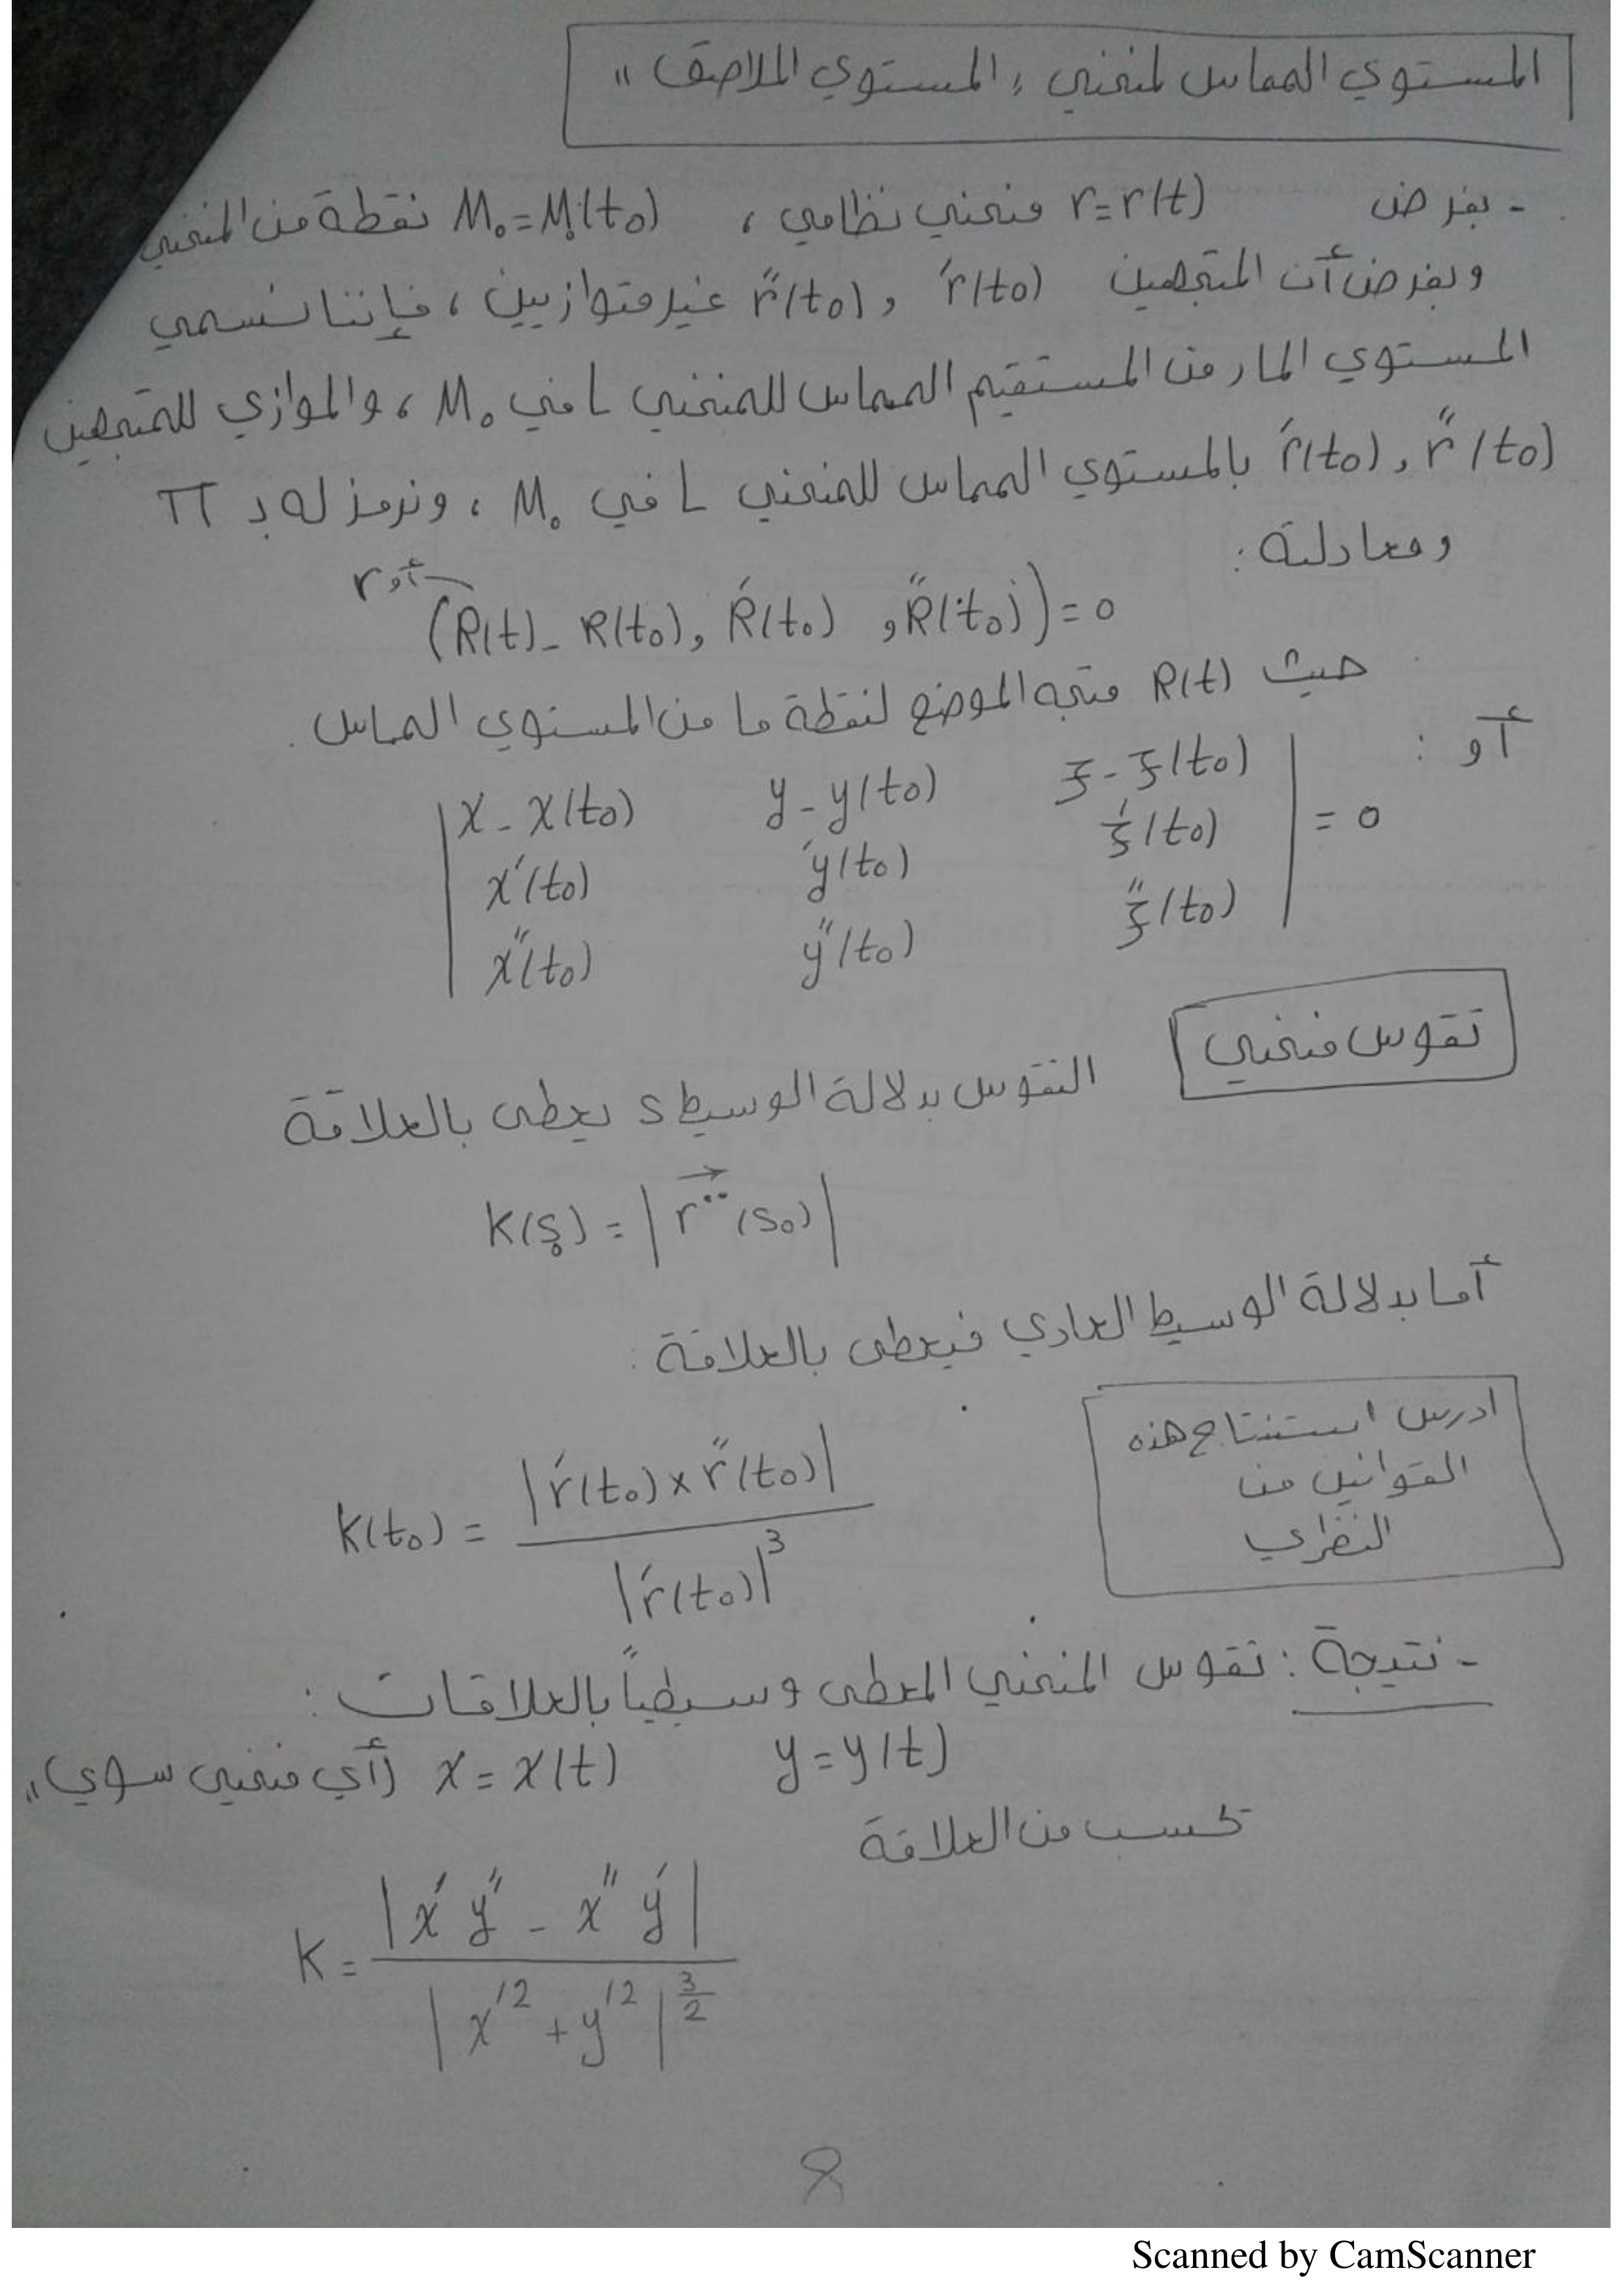 المستوي المماس لمنحني "المستوي الملاصق"
- بفرض r=r(t) منحني نظامي ، M₀=M₀(t₀) نقطة من المنحني
وبفرض أن المتجهين r'(t₀) و r''(t₀) غير متوازيين ، فإننا نسمي
المستوي المار من المستقيم المماس للمنحني L في M₀ ، والموازي للمتجهين
r''(t₀) , r'(t₀) بالمستوي المماس للمنحني L في M₀ ، ونرمز له بـ π
ومعادلته :
أو r
(R(t) - R(t₀), R'(t₀) , R''(t₀)) = 0
حيث R(t) متجه الموضع لنقطة ما من المستوي المماس .
أو :
| x - x(t₀) y - y(t₀) z - z(t₀) |
| x'(t₀) y'(t₀) z'(t₀) | = 0
| x''(t₀) y''(t₀) z''(t₀) |
تقوس منحني
التقوس بدلالة الوسيط s يعطى بالعلاقة
K(s₀) = | r̈(s₀) |
أما بدلالة الوسيط العادي فيعطى بالعلاقة :
ادرس استنتاج هذه
القوانين من
النظري
K(t₀) = |r'(t₀) x r''(t₀)| / |r'(t₀)|³
- نتيجة : تقوس المنحني المعطى وسيطياً بالعلاقات :
y = y(t) x = x(t) (أي منحني سوي)
تحسب من العلاقة
K = |x' y'' - x'' y'| / |x'² + y'²|^(3/2)
8
Scanned by CamScanner